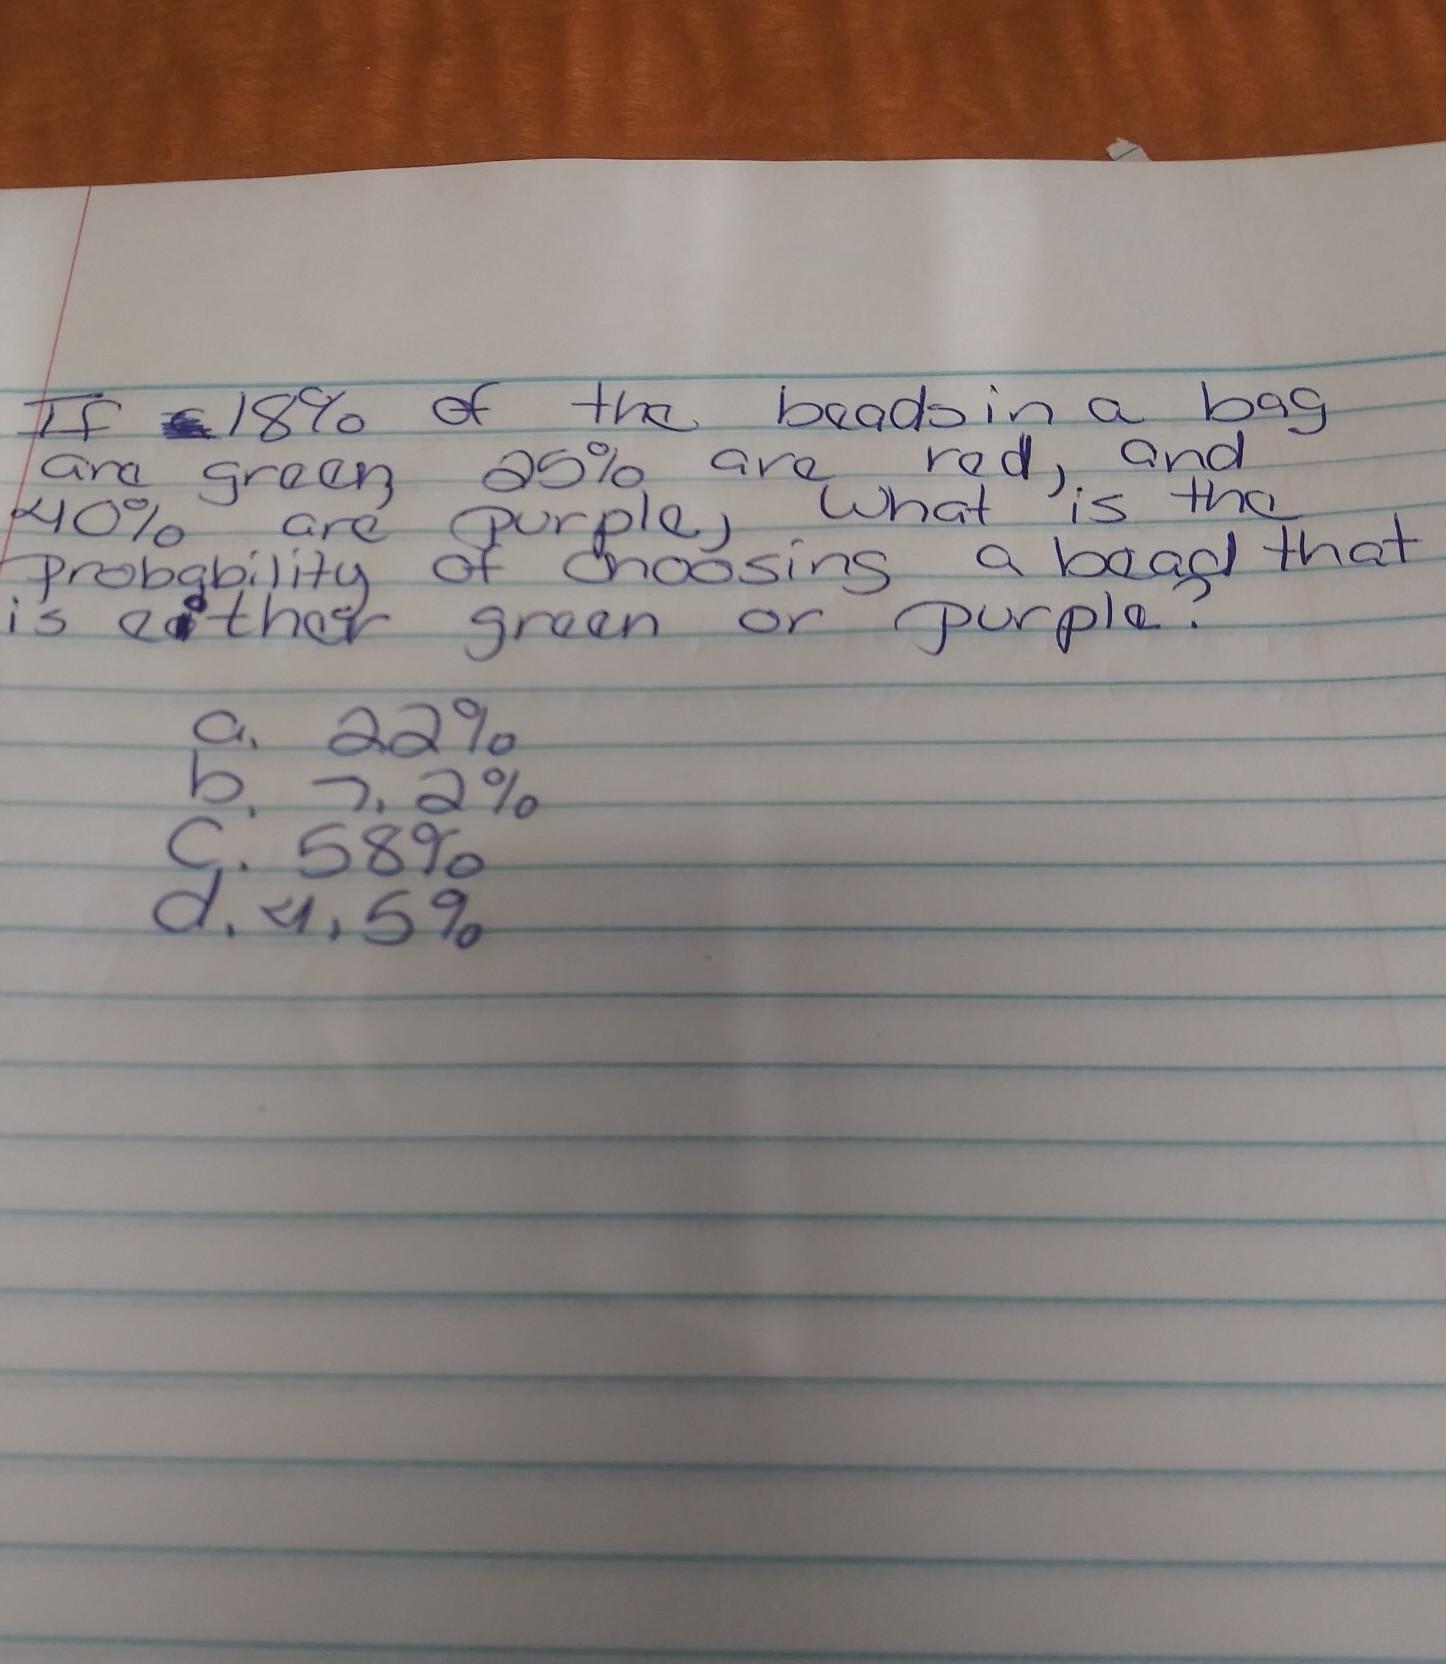 If 18% of the beads in a bag
are green, 25% are red, and
40% are purple, what is the
probability of choosing a bead that
is either green or purple?
a. 22%
b. 7.2%
c. 58%
d. 4.5%